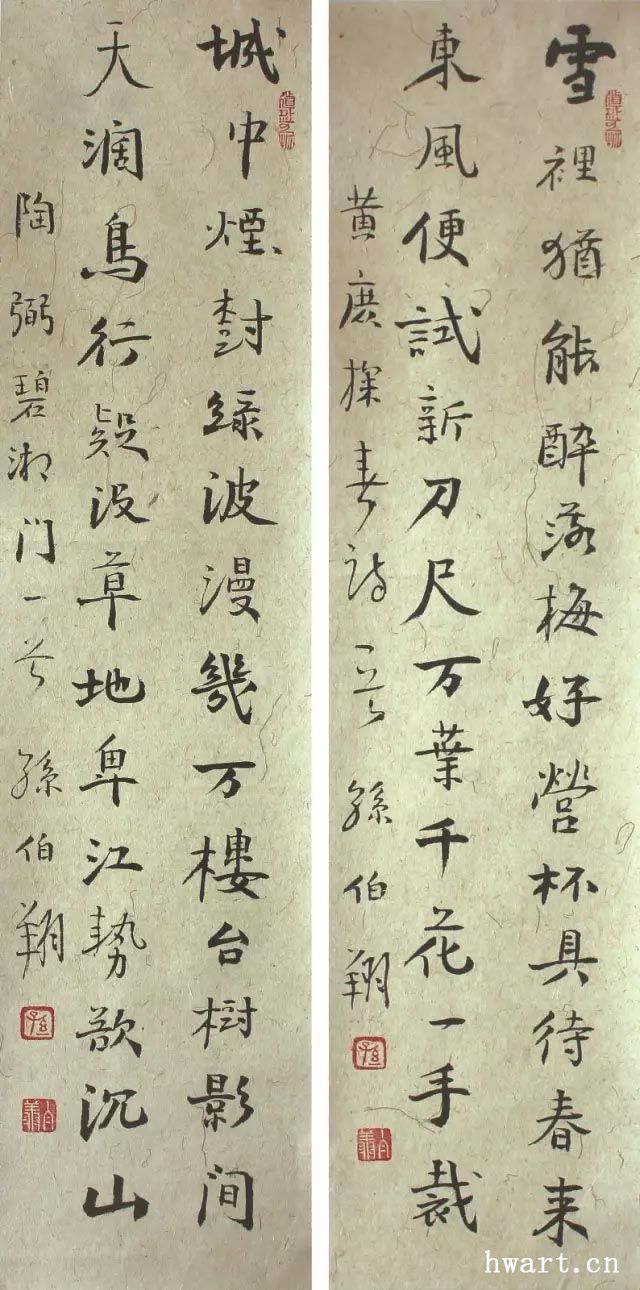 雪裡猶能醉落梅好營杯具待春来
東風便試新刀尺万葉千花一手裁
黄庶探春詩一首 孫伯翔
城中煙樹綠波漫幾万樓台樹影间
天濶鳥行疑没草地卑江勢欲沉山
陶弼碧湘门一首 孫伯翔
hwart.cn